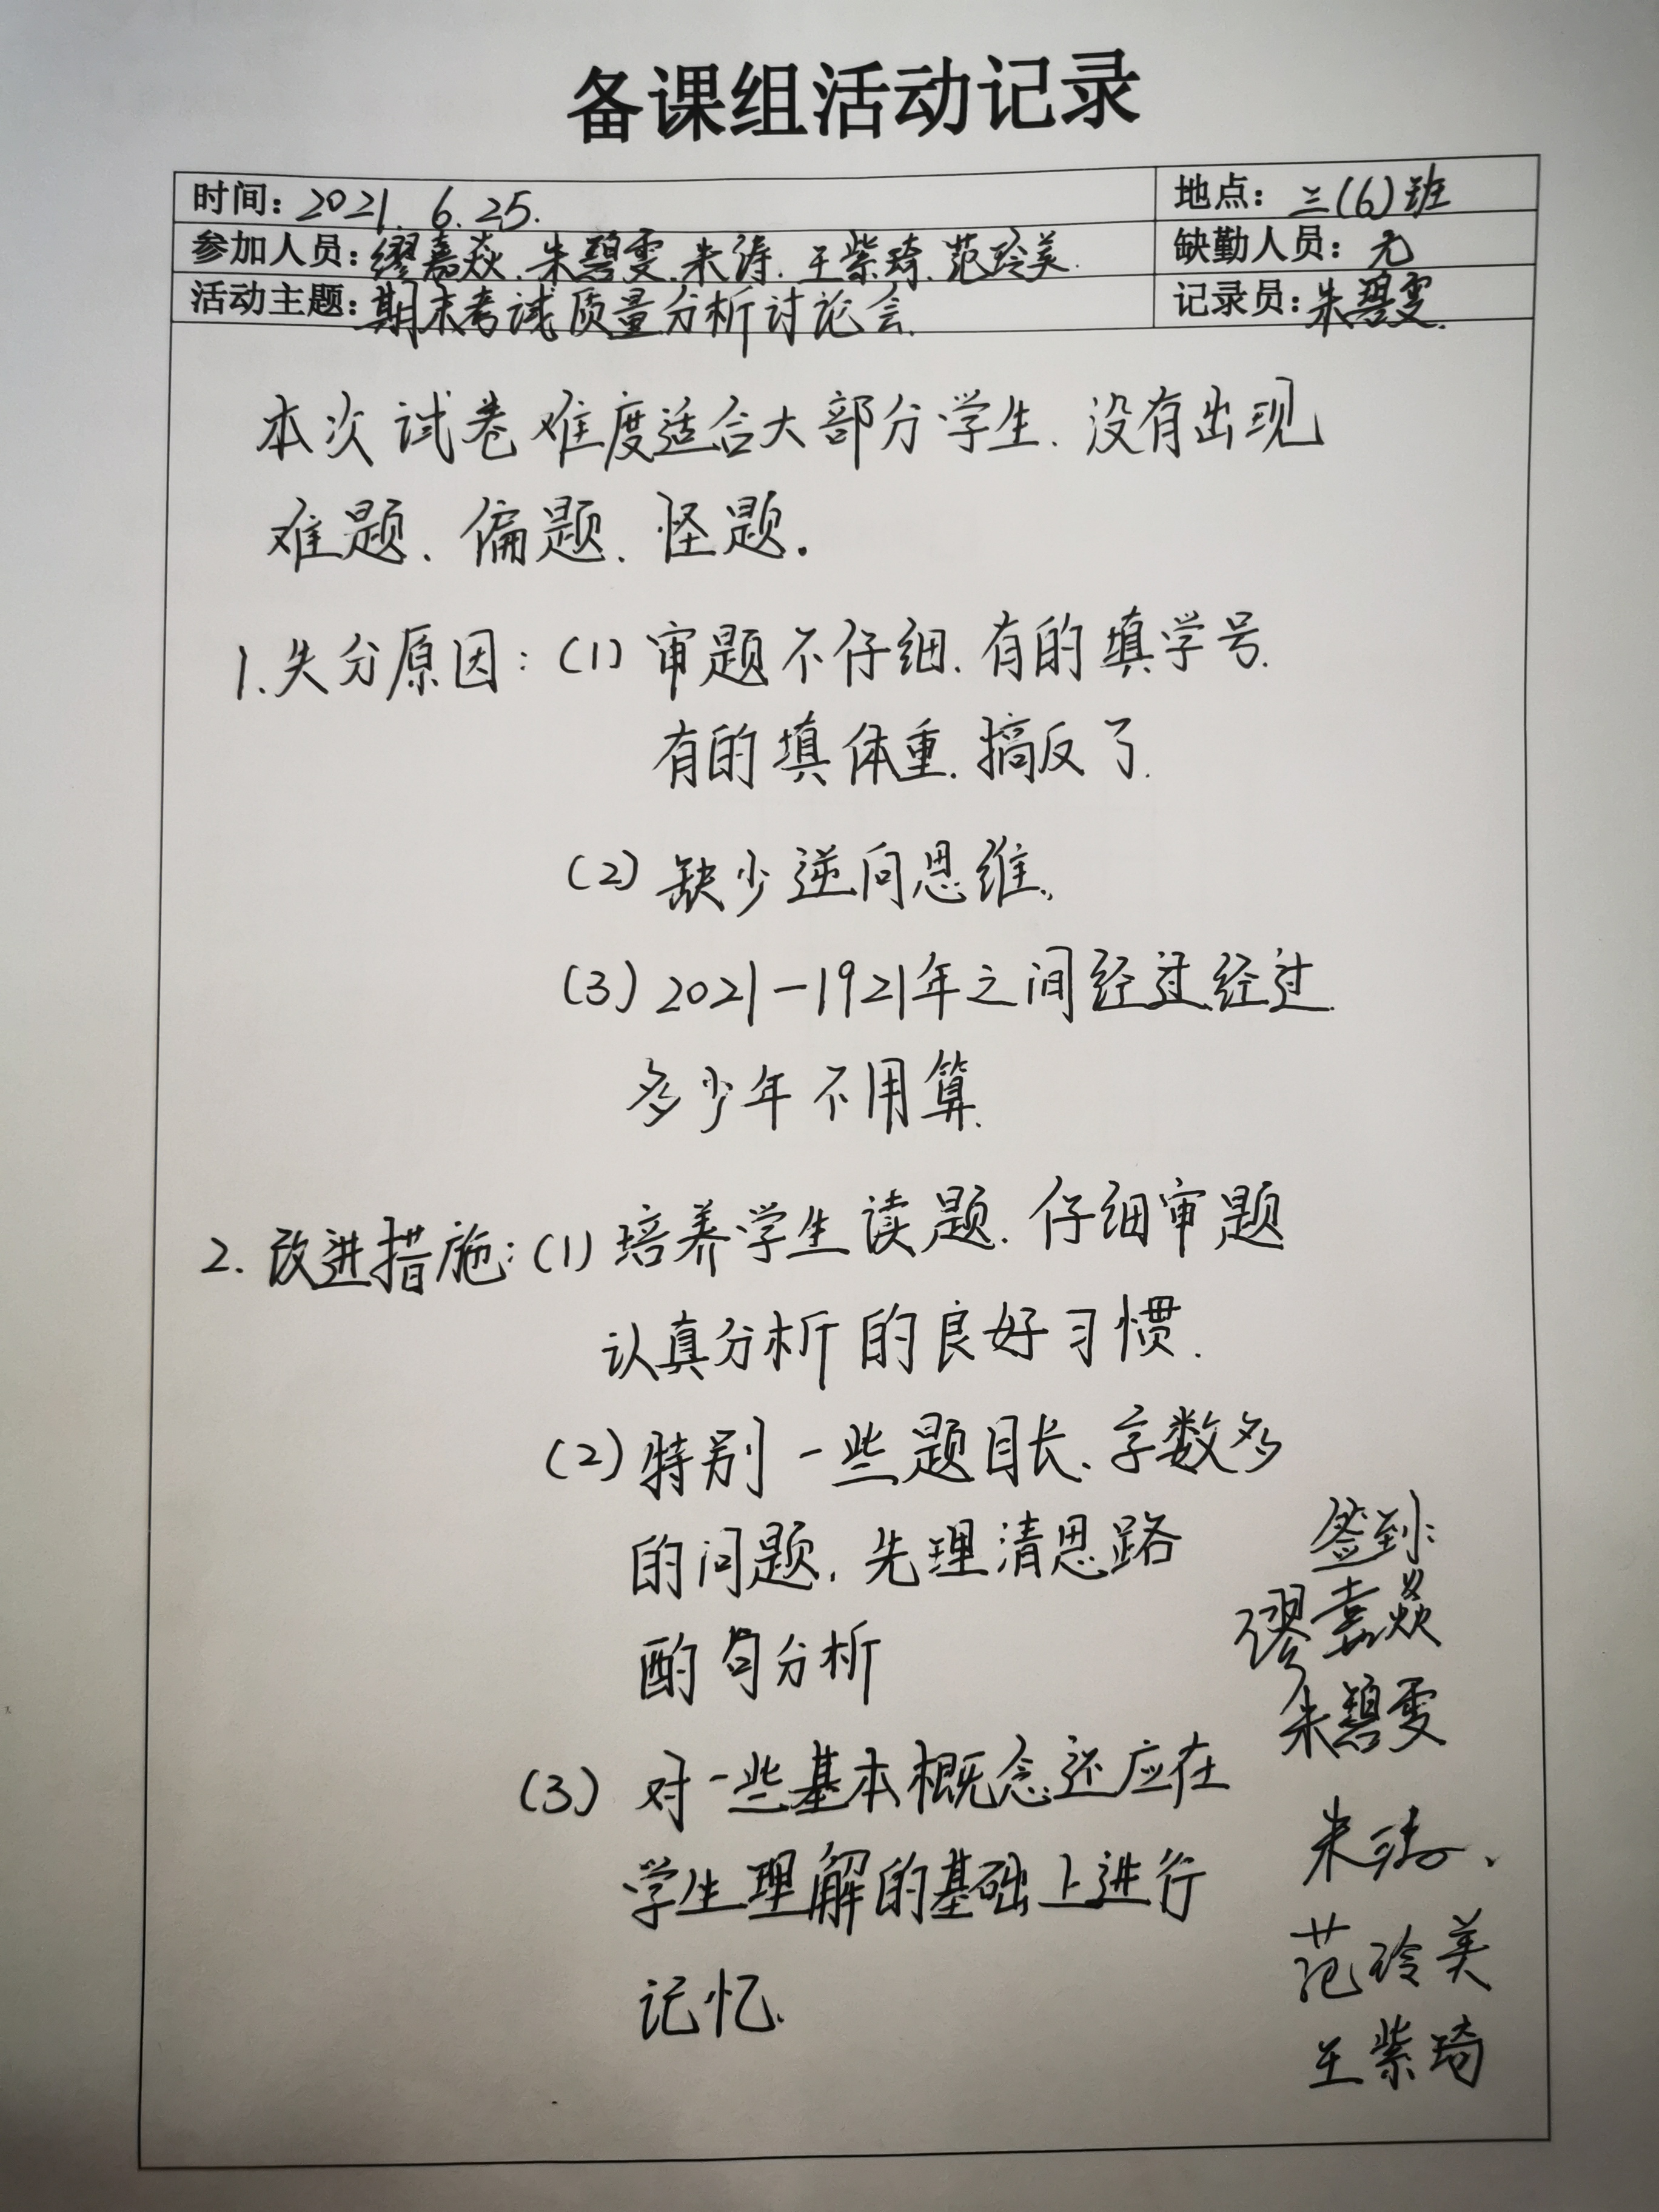 备课组活动记录
时间：2021.6.25.
地点：三(6)班
参加人员：缪嘉焱、朱碧雯、朱涛、王紫琦、范玲美.
缺勤人员：无
活动主题：期末考试质量分析讨论会.
记录员：朱碧雯.
本次试卷难度适合大部分学生.没有出现
难题、偏题、怪题.
1.失分原因：(1)审题不仔细.有的填学号.
有的填体重.搞反了.
(2)缺少逆向思维.
(3)2021-1921年之间经过经过
多少年不用算.
2.改进措施：(1)培养学生读题.仔细审题
认真分析的良好习惯.
(2)特别一些题目长、字数多
的问题，先理清思路
酌句分析
(3)对一些基本概念还应在
学生理解的基础上进行
记忆.
签到：
缪嘉焱
朱碧雯
朱涛、
范玲美
王紫琦